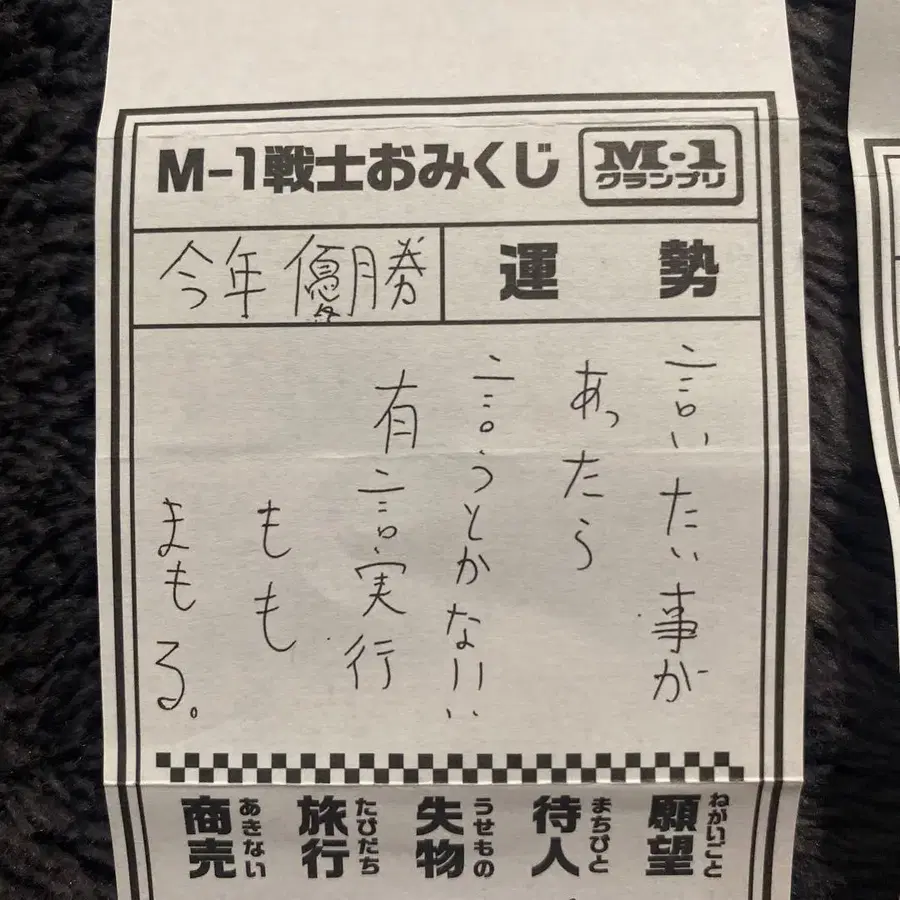 M-1戦士おみくじ
M-1
グランプリ
運勢
今年優勝
言いたい事が
あったら
言うとかな!!
有言実行
もも
まもる。
願望
ねがいごと
待人
まちびと
失物
うせもの
旅行
たびだち
商売
あきない